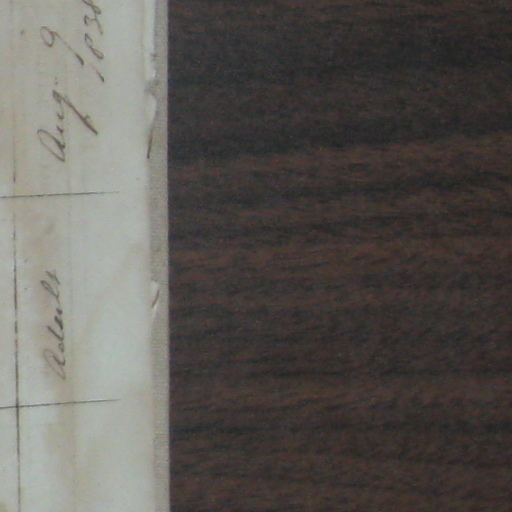 Adult
Aug 9
1838